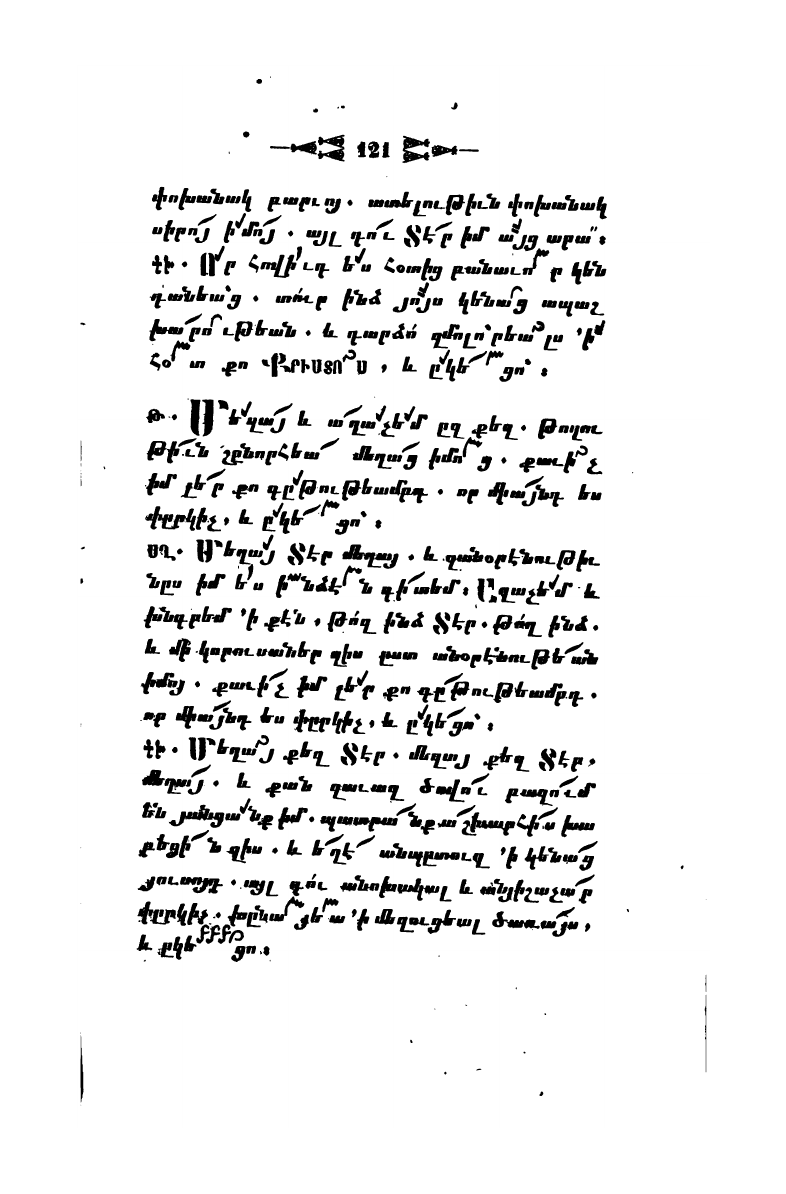 121
փոխանակ բարւոյ. ատելութիւն փոխանակ
սիրոյ իմոյ. այլ դու Տէր իմ այց արա՛։
դկ. Որ Հովիւդ ես Հօտից բանաւորը կեն
դանեաց. տուր ինձ յոյս կենաց ապաշ
խարութեան. և դարձո զմոլորեալս ՚ի
Հօտ քո ՔՐԻՍՏՈՍ, և ըկեցո։
թ. Մեղայ և աղաչեմ ըզ քեզ. թողու
թիւն շընորՀեա մեղաց իմոց. քաւիչ
իմ լեր քո գըթութեամբդ. որ միայնդ ես
փըրկիչ, և ըկեցո։
ԱՂ. Մեղայ Տէր մեղայ. և զանօրէնութիւ
նըս իմ ես ինձէն գիտեմ։ Աղաչեմ և
խնդրեմ ՚ի քէն, թող ինձ Տէր. թող ինձ.
և մի կորուսաներ զիս ըստ անօրէնութեան
իմոյ. քաւիչ իմ լեր քո գըթութեամբդ.
որ միայնդ ես փըրկիչ, և ըկեցո։
դկ. Մեղայ քեզ Տէր. մեղայ քեզ Տէր,
մեղայ. և քան զաւազ ծովու բազում
են յանցանք իմ. պատրանք աշխարՀիս խա
բեցին զիս. և եղէ անպըտուղ ՚ի կենաց
յուտոյդ. այլ դու անոխակալ և անյիշաչար
փըրկիչ. խընայեա ՚ի մեղուցեալ ծառայս,
և ըկեցո։